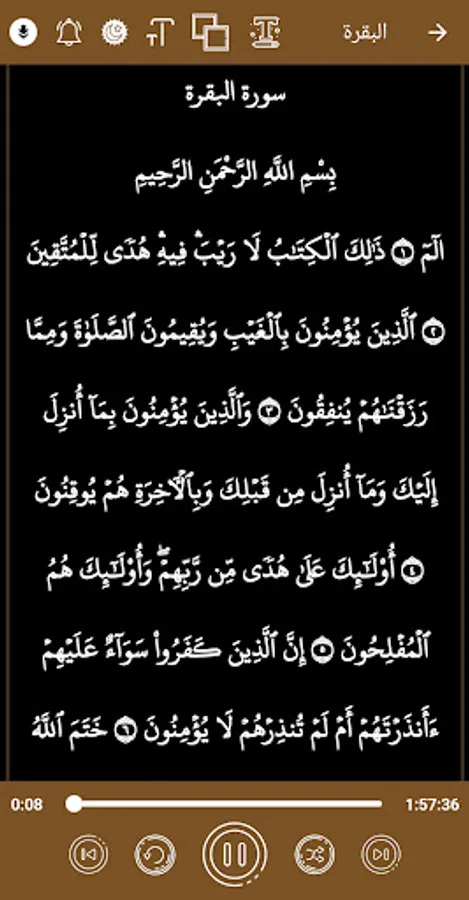 البقرة
سورة البقرة
بِسْمِ اللَّهِ الرَّحْمَنِ الرَّحِيمِ
الٓمٓ ١ ذَٰلِكَ ٱلْكِتَٰبُ لَا رَيْبَۛ فِيهِۛ هُدًى لِّلْمُتَّقِينَ
٢ ٱلَّذِينَ يُؤْمِنُونَ بِٱلْغَيْبِ وَيُقِيمُونَ ٱلصَّلَوٰةَ وَمِمَّا
رَزَقْنَٰهُمْ يُنفِقُونَ ٣ وَٱلَّذِينَ يُؤْمِنُونَ بِمَآ أُنزِلَ
إِلَيْكَ وَمَآ أُنزِلَ مِن قَبْلِكَ وَبِٱلْأٓخِرَةِ هُمْ يُوقِنُونَ
٤ أُو۟لَٰٓئِكَ عَلَىٰ هُدًى مِّن رَّبِّهِمْۖ وَأُو۟لَٰٓئِكَ هُمُ
ٱلْمُفْلِحُونَ ٥ إِنَّ ٱلَّذِينَ كَفَرُوا۟ سَوَآءٌ عَلَيْهِمْ
ءَأَنذَرْتَهُمْ أَمْ لَمْ تُنذِرْهُمْ لَا يُؤْمِنُونَ ٦ خَتَمَ ٱللَّهُ
0:08 1:57:36